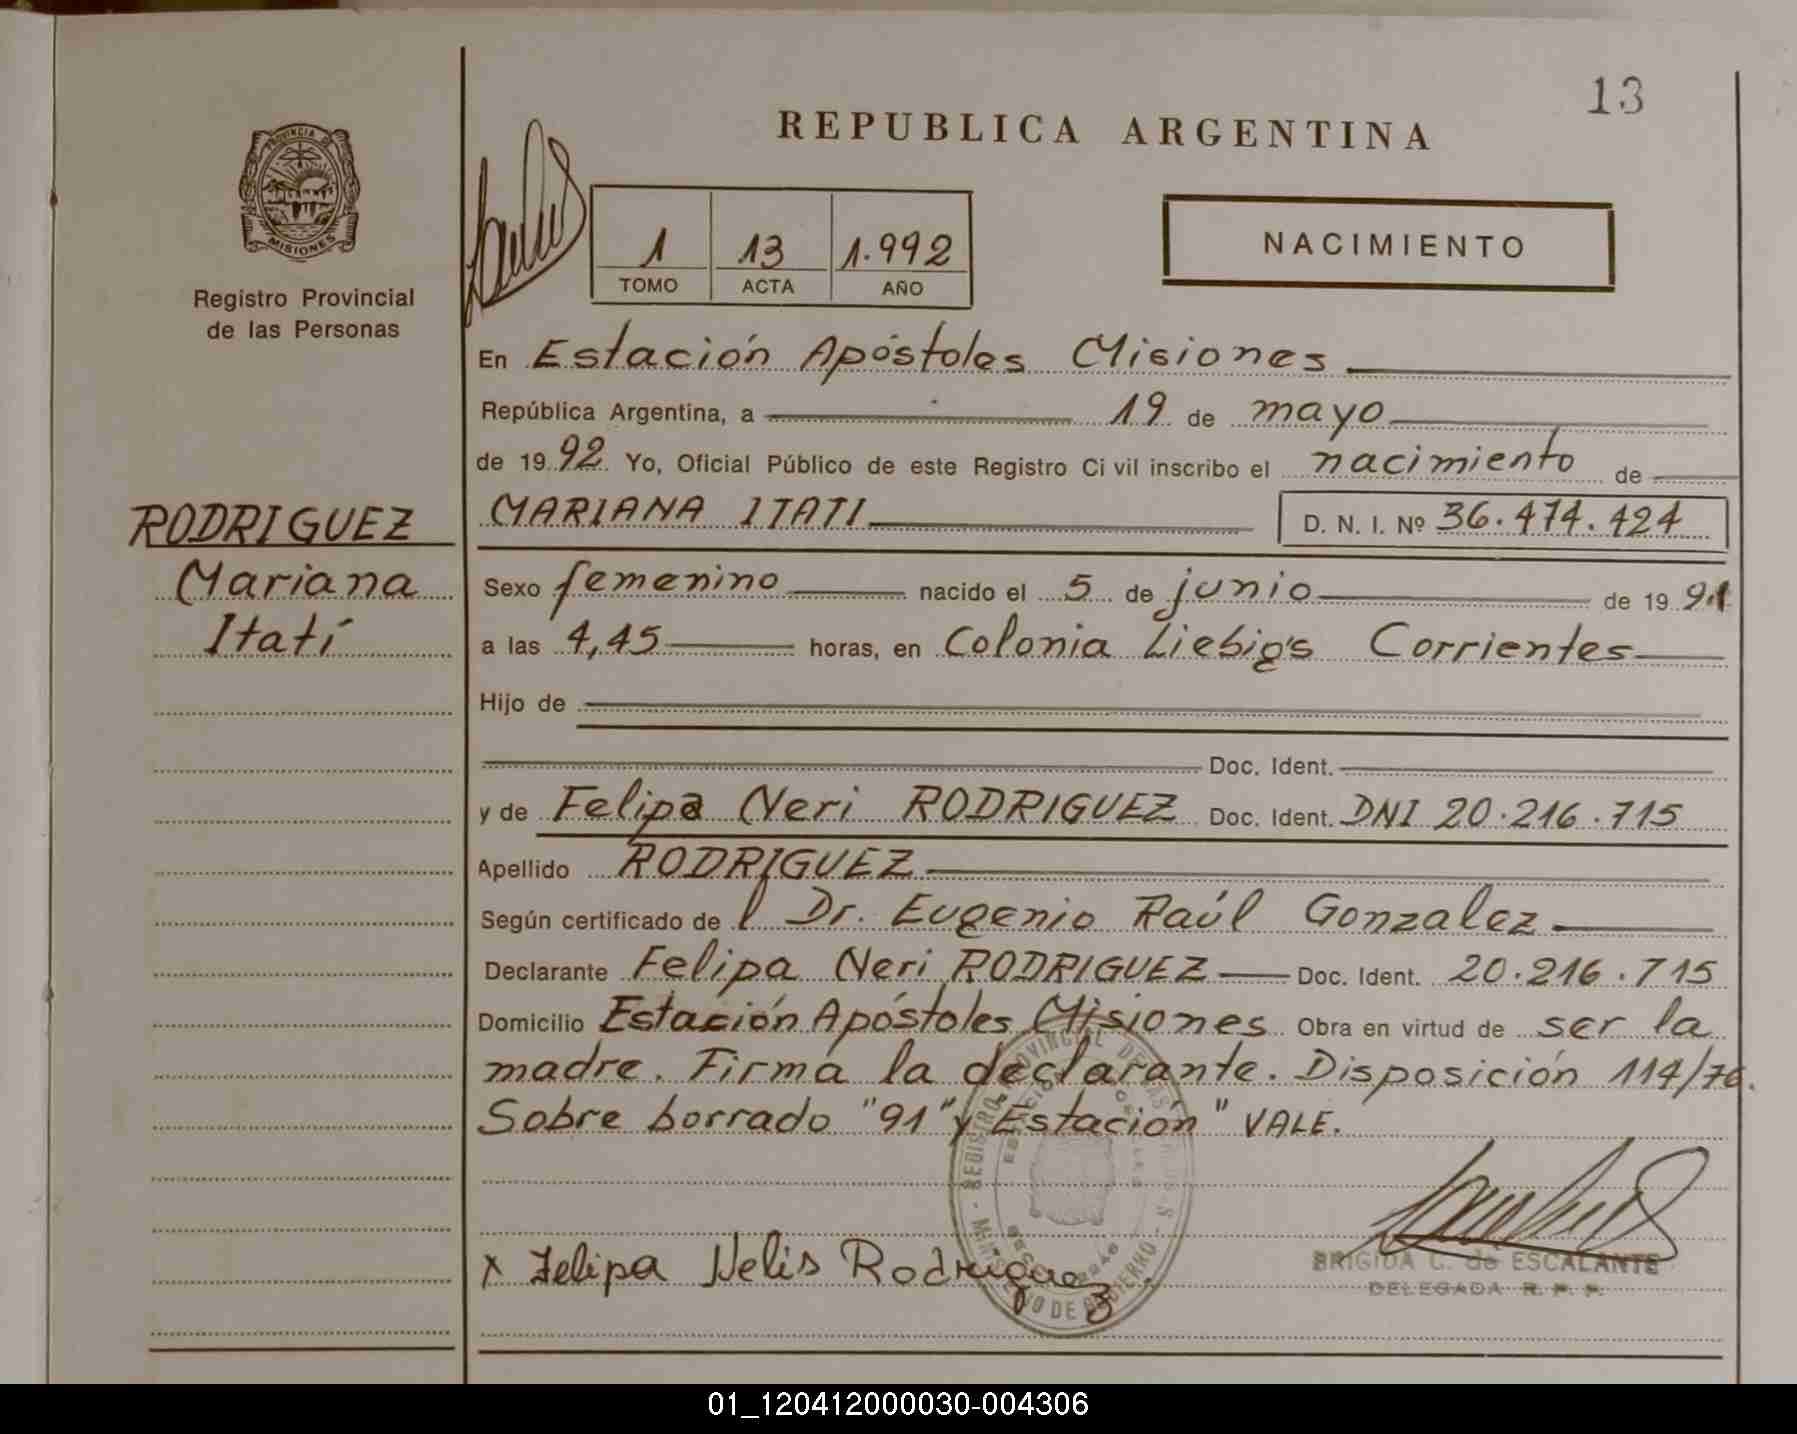 13
REPUBLICA ARGENTINA
PROVINCIA DE
MISIONES
Registro Provincial
de las Personas
1 13 1.992
TOMO ACTA AÑO
NACIMIENTO
En Estación Apóstoles Misiones
República Argentina, a 19 de mayo
de 19 92 Yo, Oficial Público de este Registro Civil inscribo el nacimiento de
MARIANA ITATI D. N. I. Nº 36.474.424
RODRIGUEZ
Mariana
Itatí
Sexo femenino nacido el 5 de junio de 19 91
a las 4,45 horas, en Colonia Liebig's Corrientes
Hijo de
Doc. Ident.
y de Felipa Neri RODRIGUEZ Doc. Ident. DNI 20.216.715
Apellido RODRIGUEZ
Según certificado de l Dr. Eugenio Raúl Gonzalez
Declarante Felipa Neri RODRIGUEZ Doc. Ident. 20.216.715
Domicilio Estación Apóstoles Misiones Obra en virtud de ser la
madre. Firma la declarante. Disposición 114/76.
Sobre borrado "91" y Estación" VALE.
x Felipa Nelis Rodriguez
BRIGIDA C. de ESCALANTE
DELEGADA R. P. P.
REGISTRO PROVINCIAL DE LAS PERSONAS
MINISTERIO DE GOBIERNO
01_120412000030-004306